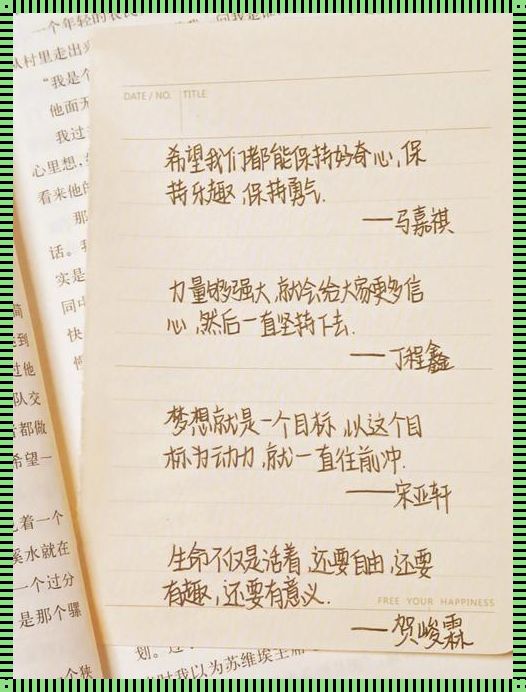 一个年轻的农民
从村里走出来
“我是个
他面无
我过
心里想，
看来他的
那
话。
实是
同中
快
到
过他
队交
都做
希望一
着一个
溪水就在
一个过分
是那个骡
DATE / NO.
TITLE
希望我们都能保持好奇心,保
持乐趣,保持勇气.
——马嘉祺
力量够强大,就会给大家更多信
心,然后一直坚持下去.
——丁程鑫
梦想就是一个目标,以这个目
标为动力,就一直往前冲.
——宋亚轩
生命不仅是活着,还要自由,还要
有趣,还要有意义.
FREE YOUR HAPPINESS
——贺峻霖
划。
时我以为苏维埃主席
个狭